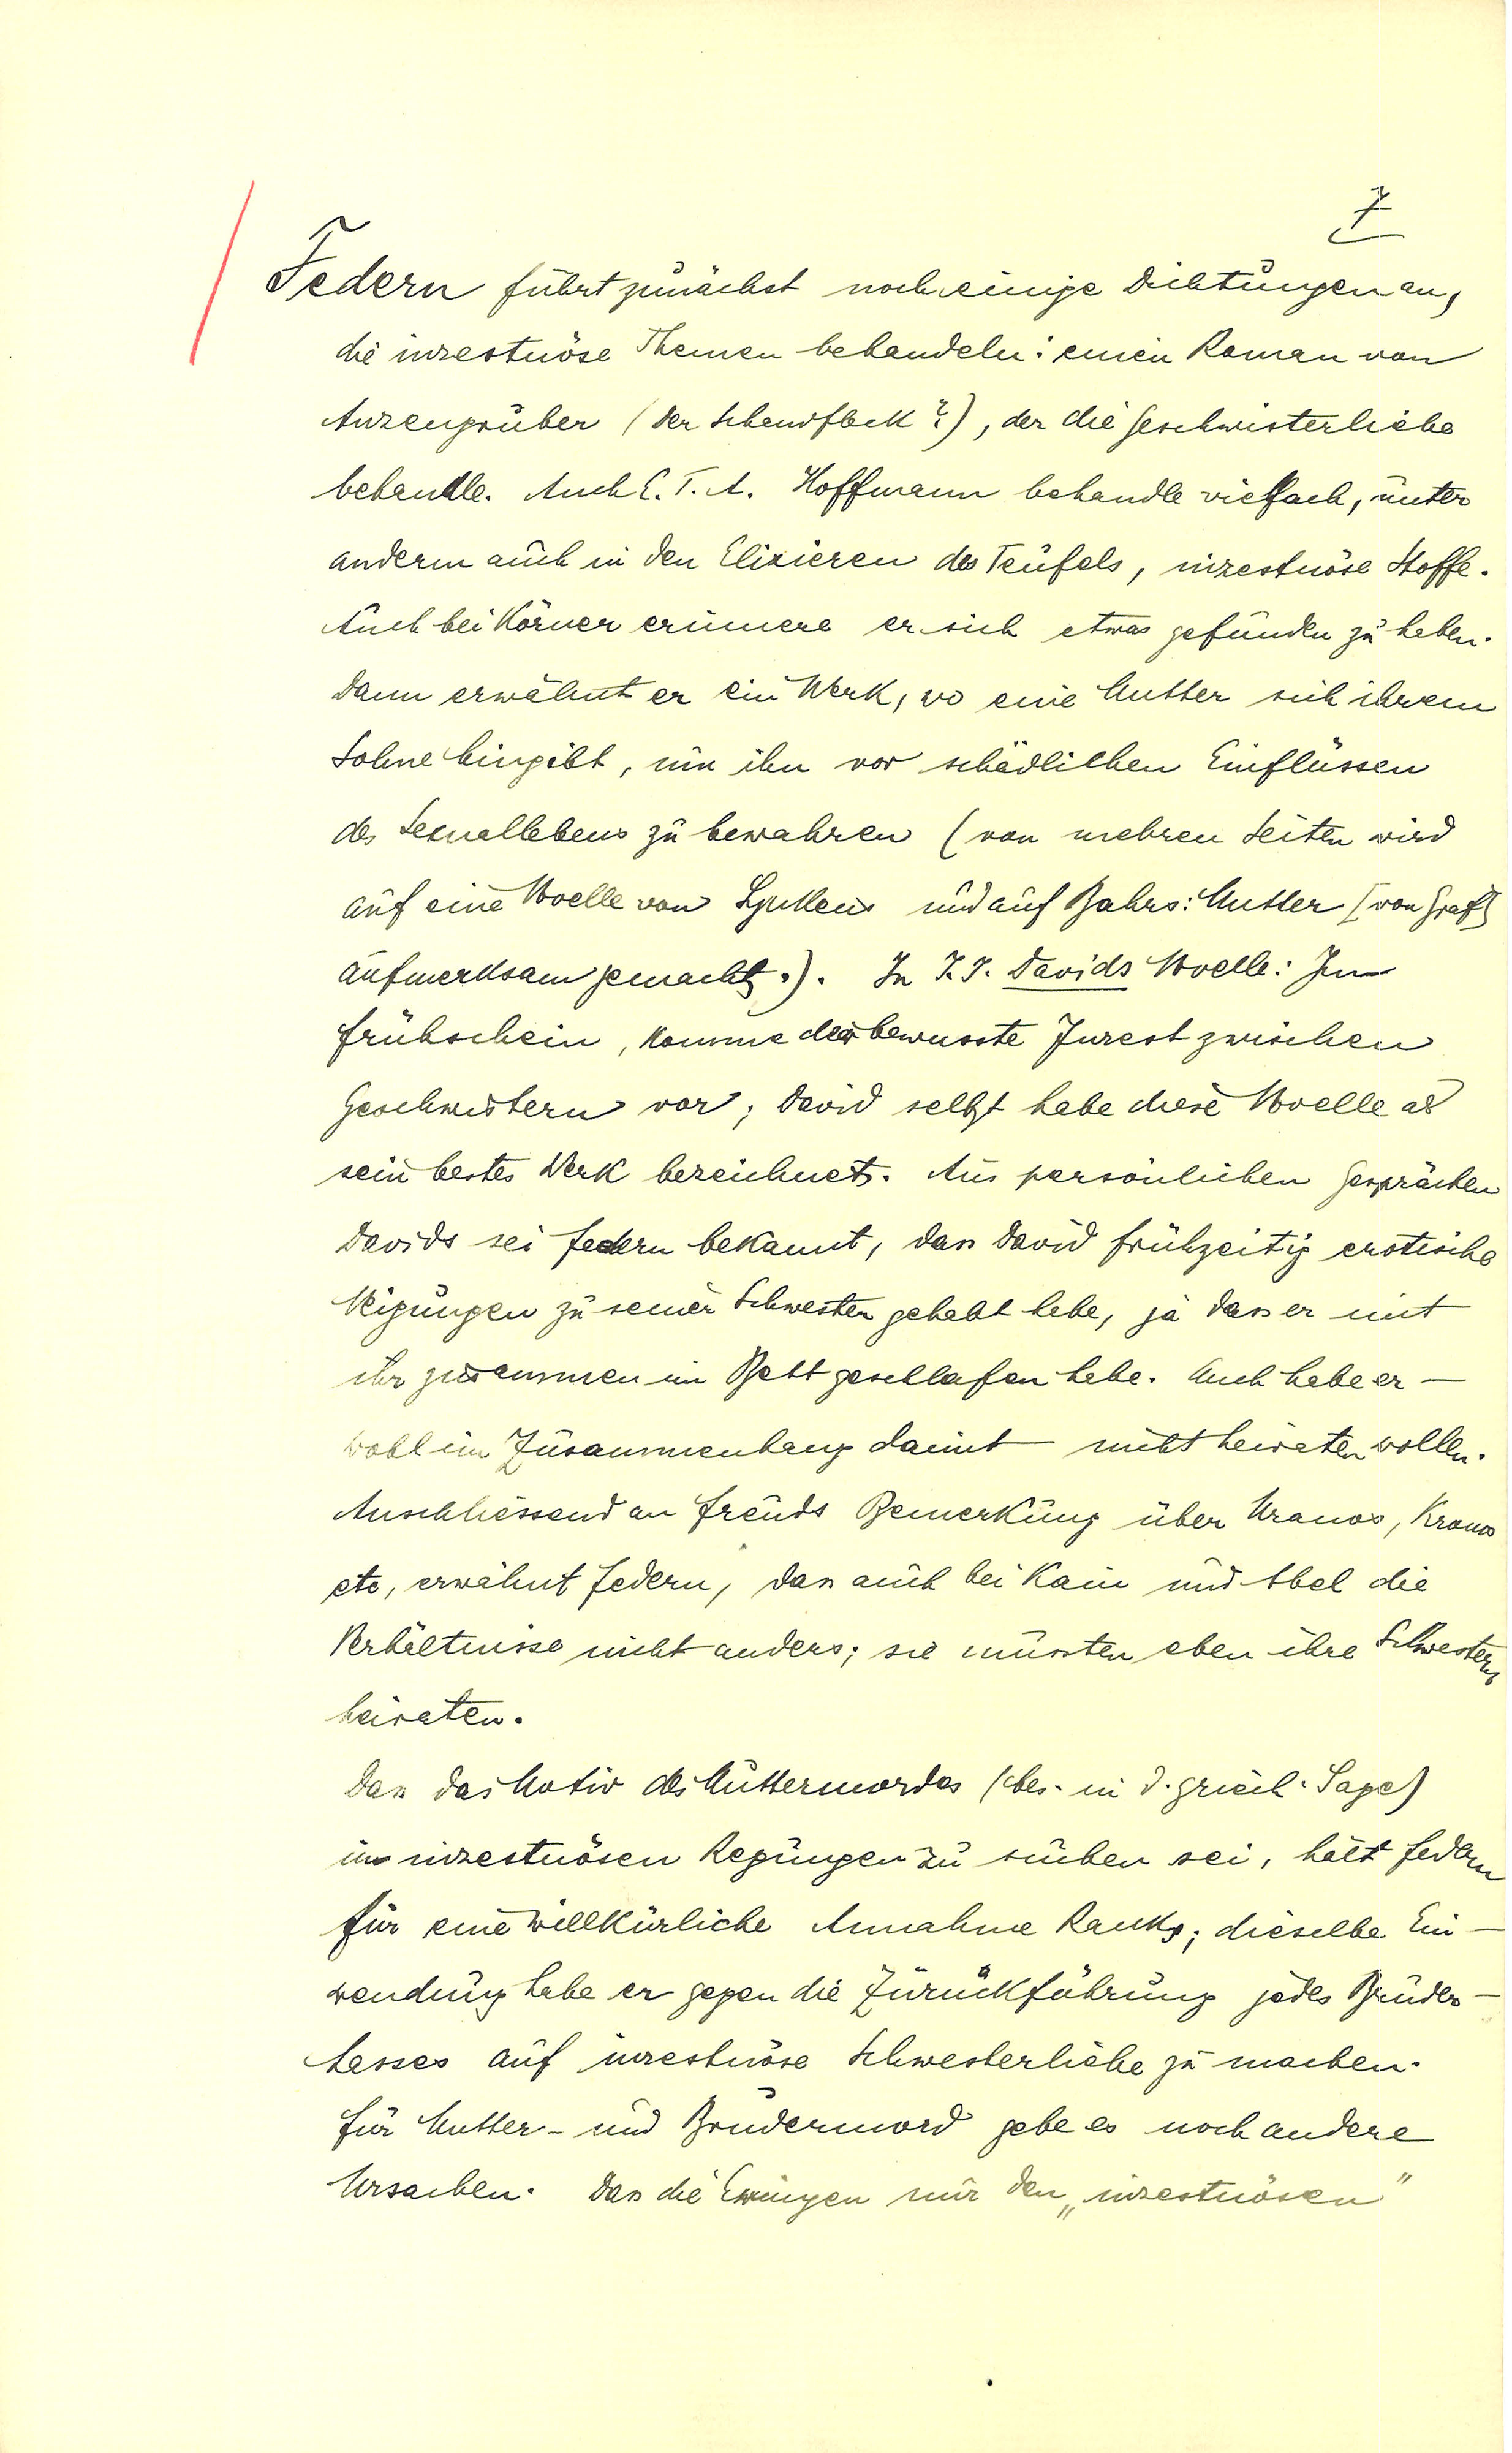 7
Federn führt zunächst noch einige Dichtungen an,
die inzestuöse Themen behandeln: einen Roman von
Anzengruber (Der Schandfleck?), der die Geschwisterliebe
behandle. Auch E. T. A. Hoffmann behandle vielfach, unter
anderm auch in den Elixieren des Teufels, inzestuöse Stoffe.
Auch bei Körner erinnere er sich etwas gefunden zu haben.
Dann erwähnt er ein Werk, wo eine Mutter sich ihrem
Sohne hingibt, um ihn vor schädlichen Einflüssen
des Sexuallebens zu bewahren (von mehren Seiten wird
auf eine Novelle von und auf Bahrs: Mutter [von Graf]
aufmerksam gemacht.). In J. J. Davids Novelle: Im
Frühschein, komme der bewusste Inzest zwischen
Geschwistern vor; David selbst habe diese Novelle als
sein bestes Werk bezeichnet. Aus persönlichen Gesprächen
Davids sei Federn bekannt, dass David frühzeitig erotische
Neigungen zu seiner Schwester gehabt habe, ja dass er mit
ihr zusammen im Bett geschlafen habe. Auch habe er —
wohl im Zusammenhang damit — nicht heiraten wollen.
Anschliessend an Freuds Bemerkung über Uranos, Kronos
etc, erwähnt Federn, dass auch bei Kain und Abel die
Verhältnisse nicht anders; sie mussten eben ihre Schwestern
heiraten.
Dass das Motiv des Muttermordes (bes. in d. griech. Sage)
in inzestuösen Regungen zu suchen sei, hält Federn
für eine willkürliche Annahme Ranks; dieselbe Ein-
wendung habe er gegen die Zurückführung jedes Bruder-
hasses auf inzestuöse Schwesterliebe zu machen.
Für Mutter- und Brudermord gebe es noch andere
Ursachen. Dass die Erinyen nur den „inzestuösen"